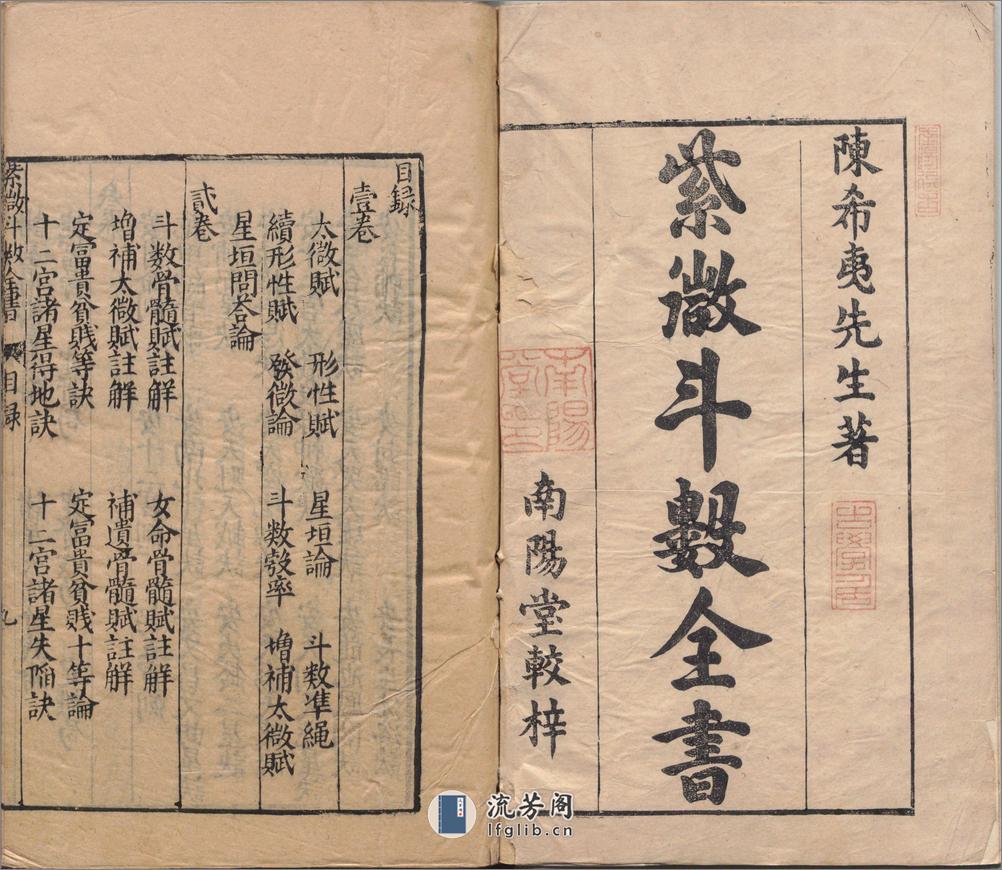 陳希夷先生著
紫微斗數全書
南陽堂較梓
南陽堂
目録
壹卷
太微賦 形性賦 星垣論 斗数凖繩
續形性賦 發微論 斗数彀率 増補太微賦
星垣問答論
貳卷
斗数骨髓賦註觧 女命骨髓賦註觧
増補太微賦註觧 補遺骨髓賦註觧
定富貴貧賎等訣 定富貴貧賎十等論
十二宫諸星得地訣 十二宫諸星失陥訣
紫微斗数全書 目録 九
流芳阁
lfglib.cn